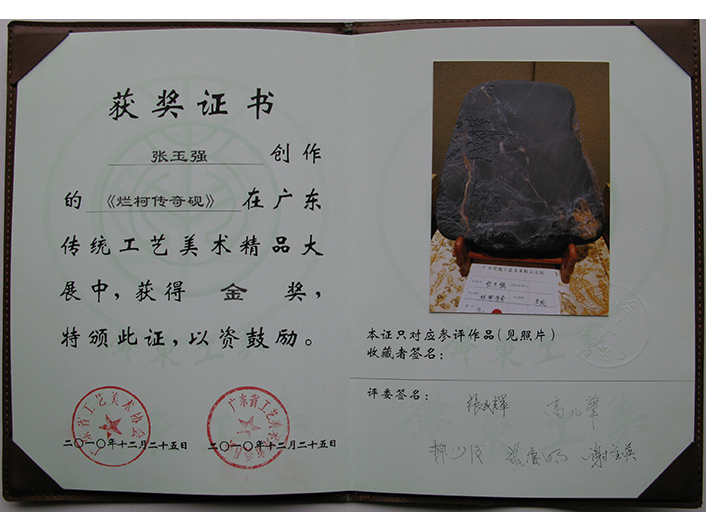 获奖证书
张玉强 创作
的《烂柯传奇砚》在广东
传统工艺美术精品大
展中，获得 金 奖，
特颁此证，以资鼓励。
广东省工艺美术协会
二〇一〇年十二月二十五日
广东省工艺美术
二〇一〇年十二月二十五日
本证只对应参评作品（见照片）
收藏者签名：
评委签名：